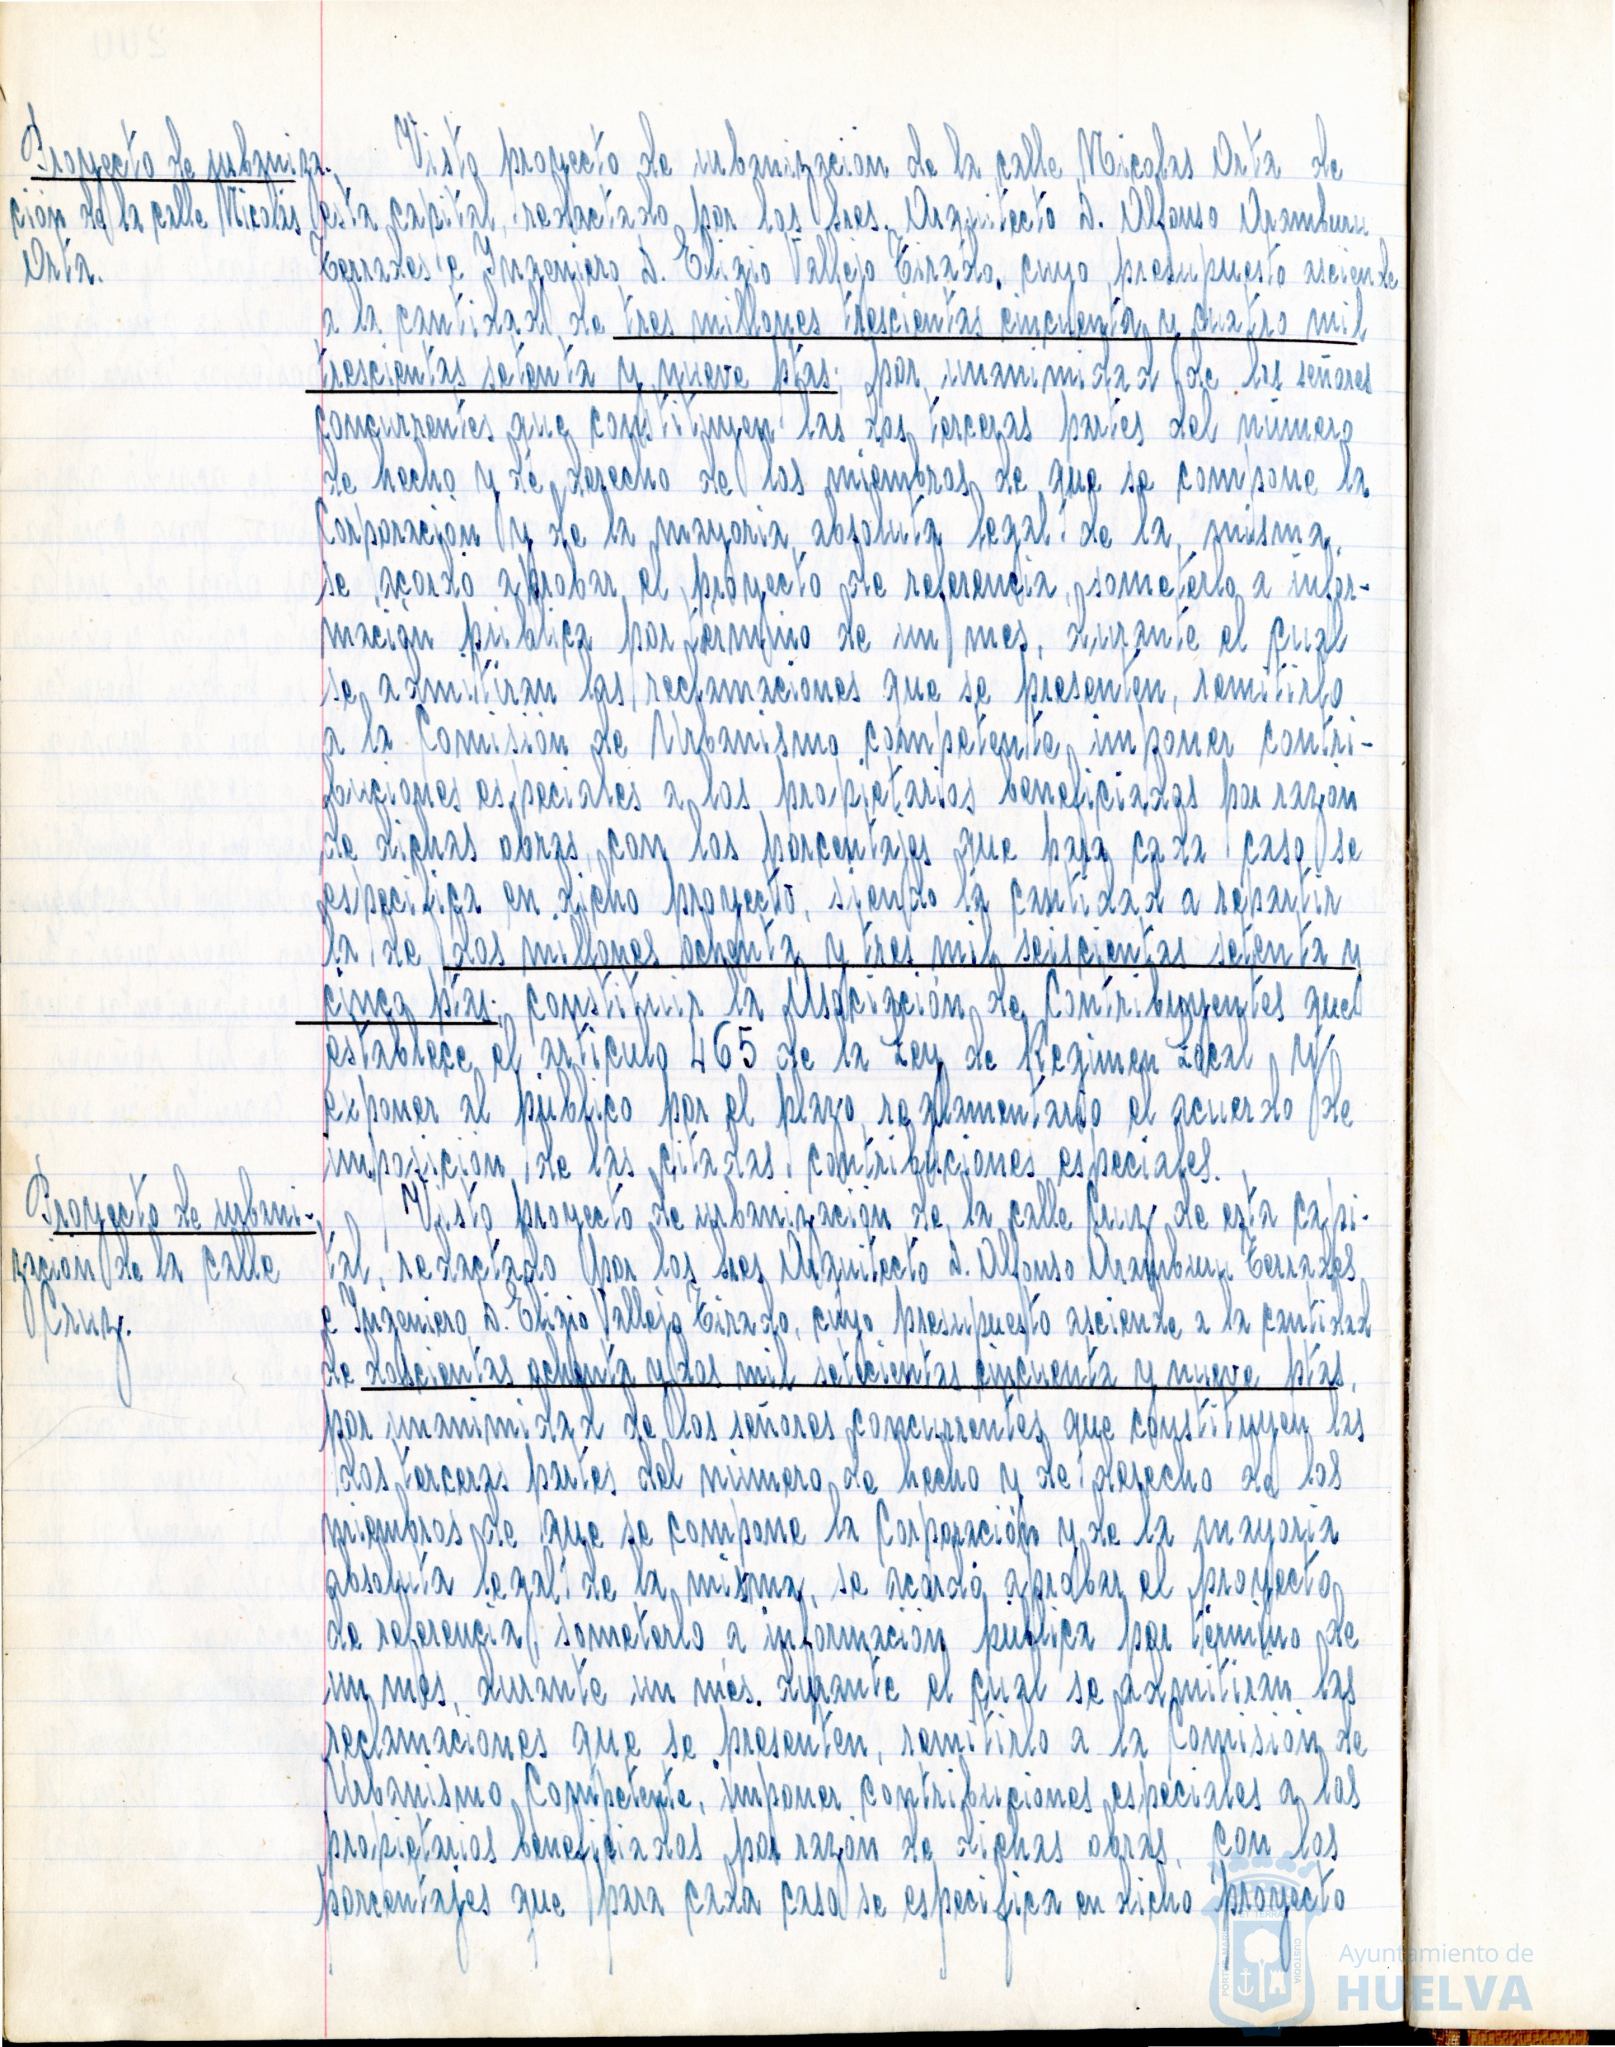 Proyecto de urbaniza-
ción de la calle Nicolás
Orta.
Visto proyecto de urbanizacion de la calle Nicolas Orta de
esta capital, redactado por los Sres. Arquitecto D. Alfonso Aramburu
Terrades e Ingeniero D. Eligio Vallejo Tirado, cuyo presupuesto asciende
a la cantidad de tres millones trescientas cincuenta y cuatro mil
trescientas setenta y nueve ptas; por unanimidad de los señores
concurrentes que constituyen las dos terceras partes del número
de hecho y de derecho de los miembros de que se compone la
Corporacion y de la mayoria absoluta legal de la misma,
se acordó aprobar el proyecto de referencia, someterlo a infor-
macion pública por término de un mes, durante el cual
se admitiran las reclamaciones que se presenten, remitirlo
a la Comisión de Urbanismo competente, imponer contri-
buciones especiales a los propietarios beneficiados por razon
de dichas obras, con los porcentajes que para cada caso se
especifica en dicho proyecto, siendo la cantidad a repartir
la de dos millones ochenta y tres mil seiscientas setenta y
cinco ptas; constituir la Asociación de Contribuyentes que
establece el artículo 465 de la Ley de Regimen Local y
exponer al público por el plazo reglamentario el acuerdo de
imposición de las citadas contribuciones especiales.
Proyecto de urbani-
zación de la calle
Cruz.
Visto proyecto de urbanización de la calle Cruz de esta capi-
tal, redactado por los Sres Arquitecto D. Alfonso Aramburu Terrades
e Ingeniero D. Eligio Vallejo Tirado, cuyo presupuesto asciende a la cantidad
de doscientas ochenta y dos mil setecientas cincuenta y nueve ptas,
por unanimidad de los señores concurrentes que constituyen las
dos terceras partes del número de hecho y de derecho de los
miembros de que se compone la Corporación y de la mayoria
absoluta legal de la misma, se acordó aprobar el proyecto
de referencia, someterlo a información pública por término de
un mes, durante un mes. durante el cual se admitiran las
reclamaciones que se presenten, remitirlo a la Comisión de
Urbanismo Competente, imponer contribuciones especiales a los
propietarios beneficiados por razón de dichas obras, con los
porcentajes que para cada caso se especifica en dicho proyecto
Ayuntamiento de
HUELVA